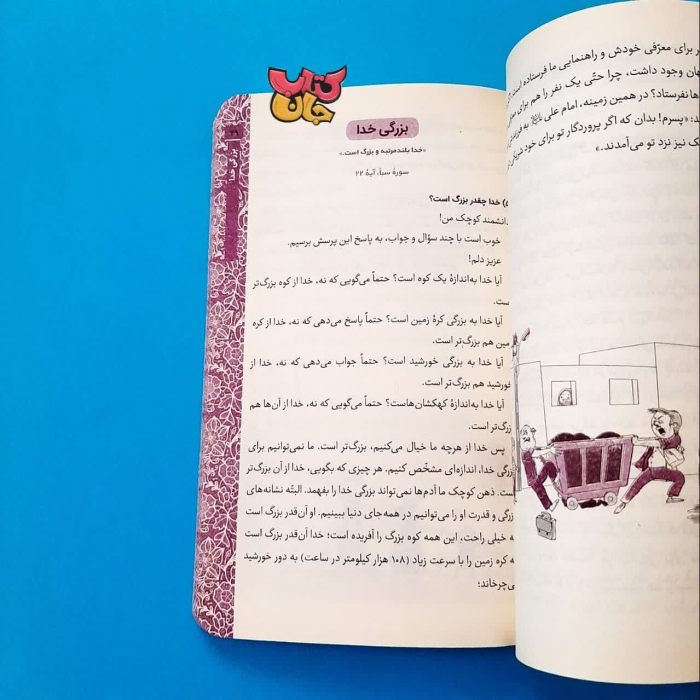 ر برای معرّفی خودش و راهنمایی ما فرستاده است.
هان وجود داشت، چرا حتّی یک نفر را هم برای
ها نفرستاد؟ در همین زمینه، امام علی به فرزندش
ند: «پسرم! بدان که اگر پروردگار تو برای خود شریکی
یک نیز نزد تو می‌آمدند.»
کتاب
جان
۲۹
بزرگی خدا
بزرگی خدا
«خدا بلندمرتبه و بزرگ است.»
سورهٔ سبأ، آیهٔ ۲۲
۵) خدا چقدر بزرگ است؟
دانشمند کوچک من!
خوب است با چند سؤال و جواب، به پاسخ این پرسش برسیم.
عزیز دلم!
آیا خدا به‌اندازهٔ یک کوه است؟ حتماً می‌گویی که نه، خدا از کوه بزرگ‌تر
ست.
آیا خدا به بزرگی کرهٔ زمین است؟ حتماً پاسخ می‌دهی که نه، خدا از کره
مین هم بزرگ‌تر است.
آیا خدا به بزرگی خورشید است؟ حتماً جواب می‌دهی که نه، خدا از
خورشید هم بزرگ‌تر است.
آیا خدا به‌اندازهٔ کهکشان‌هاست؟ حتماً می‌گویی که نه، خدا از آن‌ها هم
زرگ‌تر است.
پس خدا از هرچه ما خیال می‌کنیم، بزرگ‌تر است. ما نمی‌توانیم برای
زرگی خدا، اندازه‌ای مشخّص کنیم. هر چیزی که بگویی، خدا از آن بزرگ‌تر
ست. ذهن کوچک ما آدم‌ها نمی‌تواند بزرگی خدا را بفهمد. البتّه نشانه‌های
زرگی و قدرت او را می‌توانیم در همه‌جای دنیا ببینیم. او آن‌قدر بزرگ است
ه خیلی راحت، این همه کوه بزرگ را آفریده است؛ خدا آن‌قدر بزرگ است
ه کره زمین را با سرعت زیاد (۱۰۸ هزار کیلومتر در ساعت) به دور خورشید
ی‌چرخاند؛